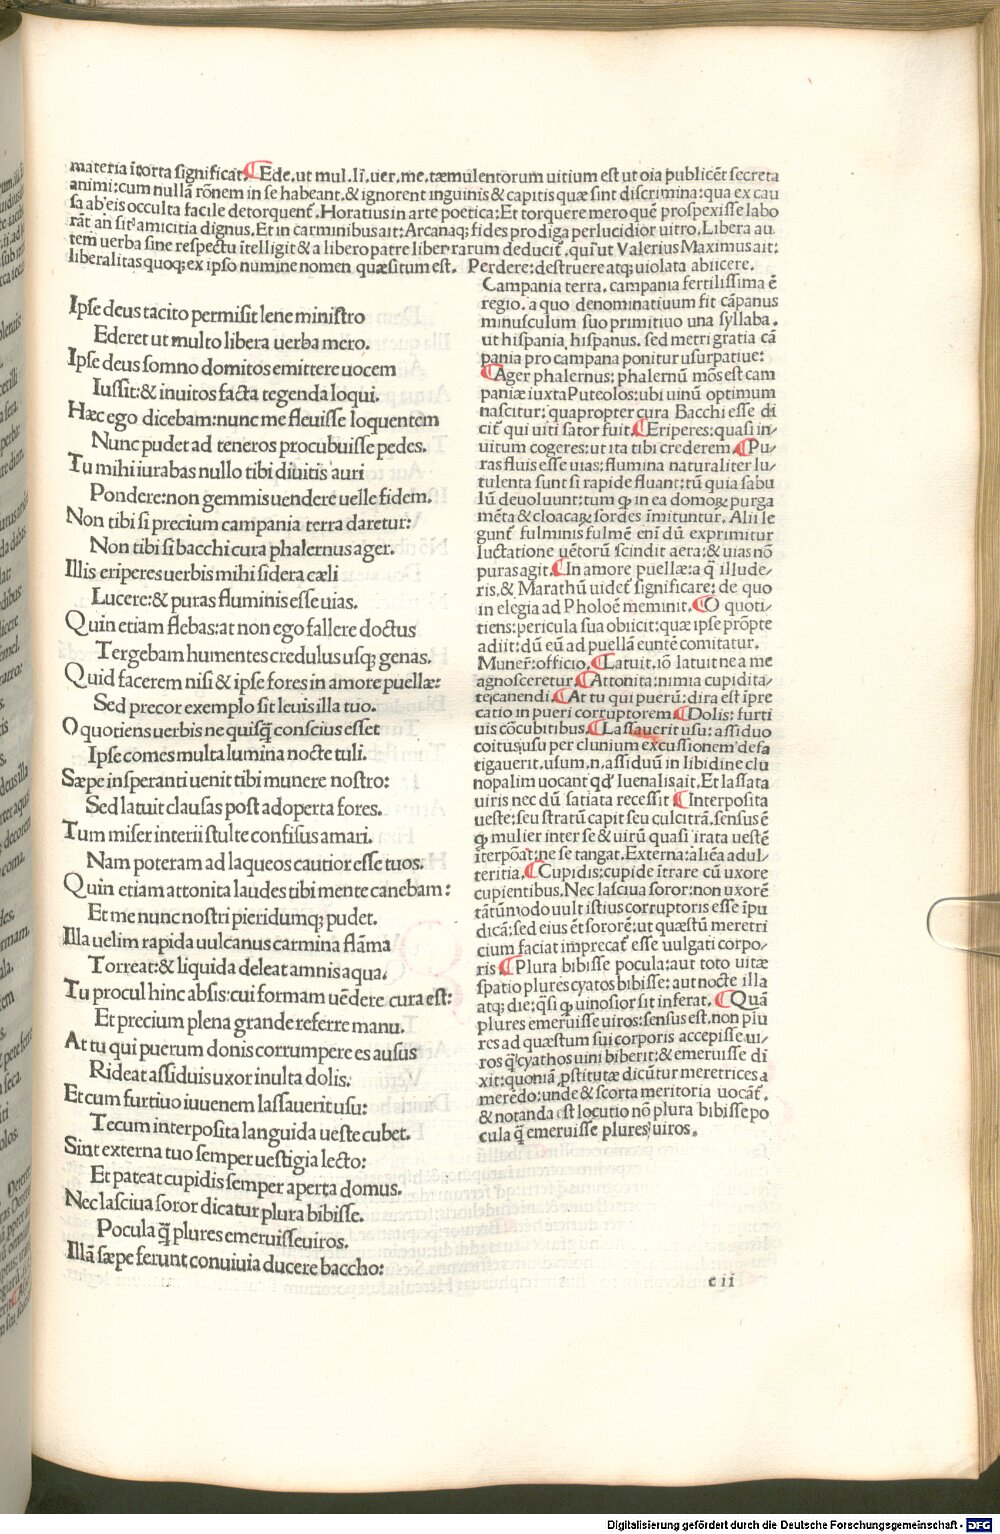 materia ītorta significat̄. ¶Ede. ut mul. lī. uer. me. tæmulentorum uitium est ut oīa publicēt secreta
animi: cum nullā rōnem in se habeant. & ignorent inguinis & capitis quæ sint discrimina: qua ex cau
sa ab eis occulta facile detorquent̄. Horatius in arte poetica: Et torquere mero quē prospexisse labo
rāt an sit amicitia dignus. Et in carminibus ait: Arcanaq; fides prodiga perlucidior uitro. Libera au
tem uerba sine respectu ītelligit & a libero patre liber rarum deducit̄. qui ut Valerius Maximus ait:
liberalitas quoq; ex ipso numine nomen quæsitum est. Perdere: destruere atq; uiolata abiicere.
Ipse deus tacito permisit lene ministro
Ederet ut multo libera uerba mero.
Ipse deus somno domitos emittere uocem
Iussit: & inuitos facta tegenda loqui.
Hæc ego dicebam: nunc me fleuisse loquentem
Nunc pudet ad teneros procubuisse pedes.
Tu mihi iurabas nullo tibi diuitis auri
Pondere: non gemmis uendere uelle fidem.
Non tibi si precium campania terra daretur:
Non tibi si bacchi cura phalernus ager.
Illis eriperes uerbis mihi sidera cæli
Lucere: & puras fluminis esse uias.
Quin etiam flebas: at non ego fallere doctus
Tergebam humentes credulus usq; genas.
Quid facerem nisi & ipse fores in amore puellæ:
Sed precor exemplo sit leuis illa tuo.
O quotiens uerbis ne quisq̄ conscius esset
Ipse comes multa lumina nocte tuli.
Sæpe insperanti uenit tibi munere nostro:
Sed latuit clausas post adoperta fores.
Tum miser interii stulte confisus amari.
Nam poteram ad laqueos cautior esse tuos.
Quin etiam attonita laudes tibi mente canebam:
Et me nunc nostri pieridumq; pudet.
Illa uelim rapida uulcanus carmina flāma
Torreat: & liquida deleat amnis aqua.
Tu procul hinc absis: cui formam uēdere cura est:
Et precium plena grande referre manu.
At tu qui puerum donis corrumpere es ausus
Rideat assiduis uxor inulta dolis.
Et cum furtiuo iuuenem lassauerit usu:
Tecum interposita languida ueste cubet.
Sint externa tuo semper uestigia lecto:
Et pateat cupidis semper aperta domus.
Nec lasciua soror dicatur plura bibisse.
Pocula q̄ plures emeruisse uiros.
Illā sæpe ferunt conuiuia ducere baccho:
Campania terra. campania fertilissima ē
regio. a quo denominatiuum fit cāpanus
minusculum suo primitiuo una syllaba.
ut hispania hispanus. sed metri gratia cā
pania pro campana ponitur usurpatiue:
¶Ager phalernus: phalernū mōs est cam
paniæ iuxta Puteolos: ubi uinū optimum
nascitur: quapropter cura Bacchi esse di
cit̄ qui uiti sator fuit. ¶Eriperes: quasi in/
uitum cogeres: ut ita tibi crederem. ¶Pu/
ras fluis esse uias: flumina naturaliter lu/
tulenta sunt si rapide fluant: tū quia sabu
lū deuoluunt: tum q̄ in ea domoꝝ purga
mēta & cloacaꝝ sordes īmituntur. Alii le
gunt̄ fulminis fulmē eni dū exprimitur
luctatione uētorū scindit aera: & uias nō
puras agit. ¶In amore puellæ: a q̄ illude/
ris. & Marathū uidet̄ significare: de quo
in elegia ad Pholoē meminit. ¶O quoti/
tiens: pericula sua obiicit: quæ ipse prōpte
adiit: dū eū ad puellā euntē comitatur.
Muner̄: officio. ¶Latuit. iō latuit ne a me
agnosceretur. ¶Attonita: nimia cupidita/
te canendi. ¶At tu qui puerū: dira est īpre
catio in pueri corruptorem ¶Dolis: furti
uis cōcubitibus. ¶Lassauerit usu: assiduo
coitus usu per clunium excussionem defa
tigauerit. usum. n. assiduū in libidine clu
nopalim uocant qd' Iuenalis ait. Et lassata
uiris nec dū satiata recessit ¶Interposita
ueste: seu stratū capit seu culcitrā. sensus ē
q̄ mulier inter se & uirū quasi irata uestē
īterpōat: ne se tangat. Externa: aliēa adul/
teritia. ¶Cupidis: cupide ītrare cū uxore
cupientibus. Nec lasciua soror: non uxorē
tātūmodo uult istius corruptoris esse īpu
dicā: sed eius ēt sororē: ut quæstū meretri
cium faciat imprecat̄ esse uulgati corpo/
ris ¶Plura bibisse pocula: aut toto uitæ
spatio plures cyatos bibisse: aut nocte illa
atq; die: q̄si q̄ uinosior sit inferat. ¶Quā
plures emeruisse uiros: sensus est. non plu
res ad quæstum sui corporis accepisse ui/
ros q̄ cyathos uini biberit: & emeruisse di
xit: quoniā ꝓstitutæ dicūtur meretrices a
merēdo: unde & scorta meritoria uocāt̄.
& notanda est locutio nō plura bibisse po
cula q̄ emeruisse plures uiros.
e ii
Digitalisierung gefördert durch die Deutsche Forschungsgemeinschaft - DFG